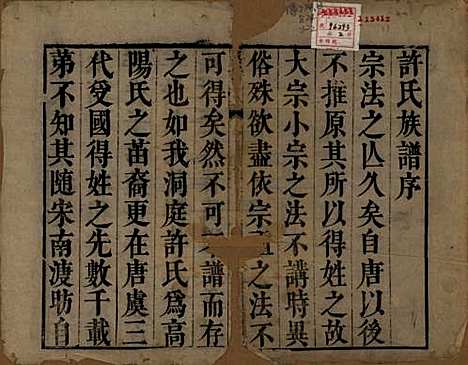 許氏族譜序
宗法之亾久矣自唐以後
不推原其所以得姓之故
大宗小宗之法不講時異
俗殊欲盡依宗之法不
可得矣然不可譜而存
之也如我洞庭許氏爲高
陽氏之苗裔更在唐虞三
代受國得姓之先數千載
弟不知其隨宋南渡昉自